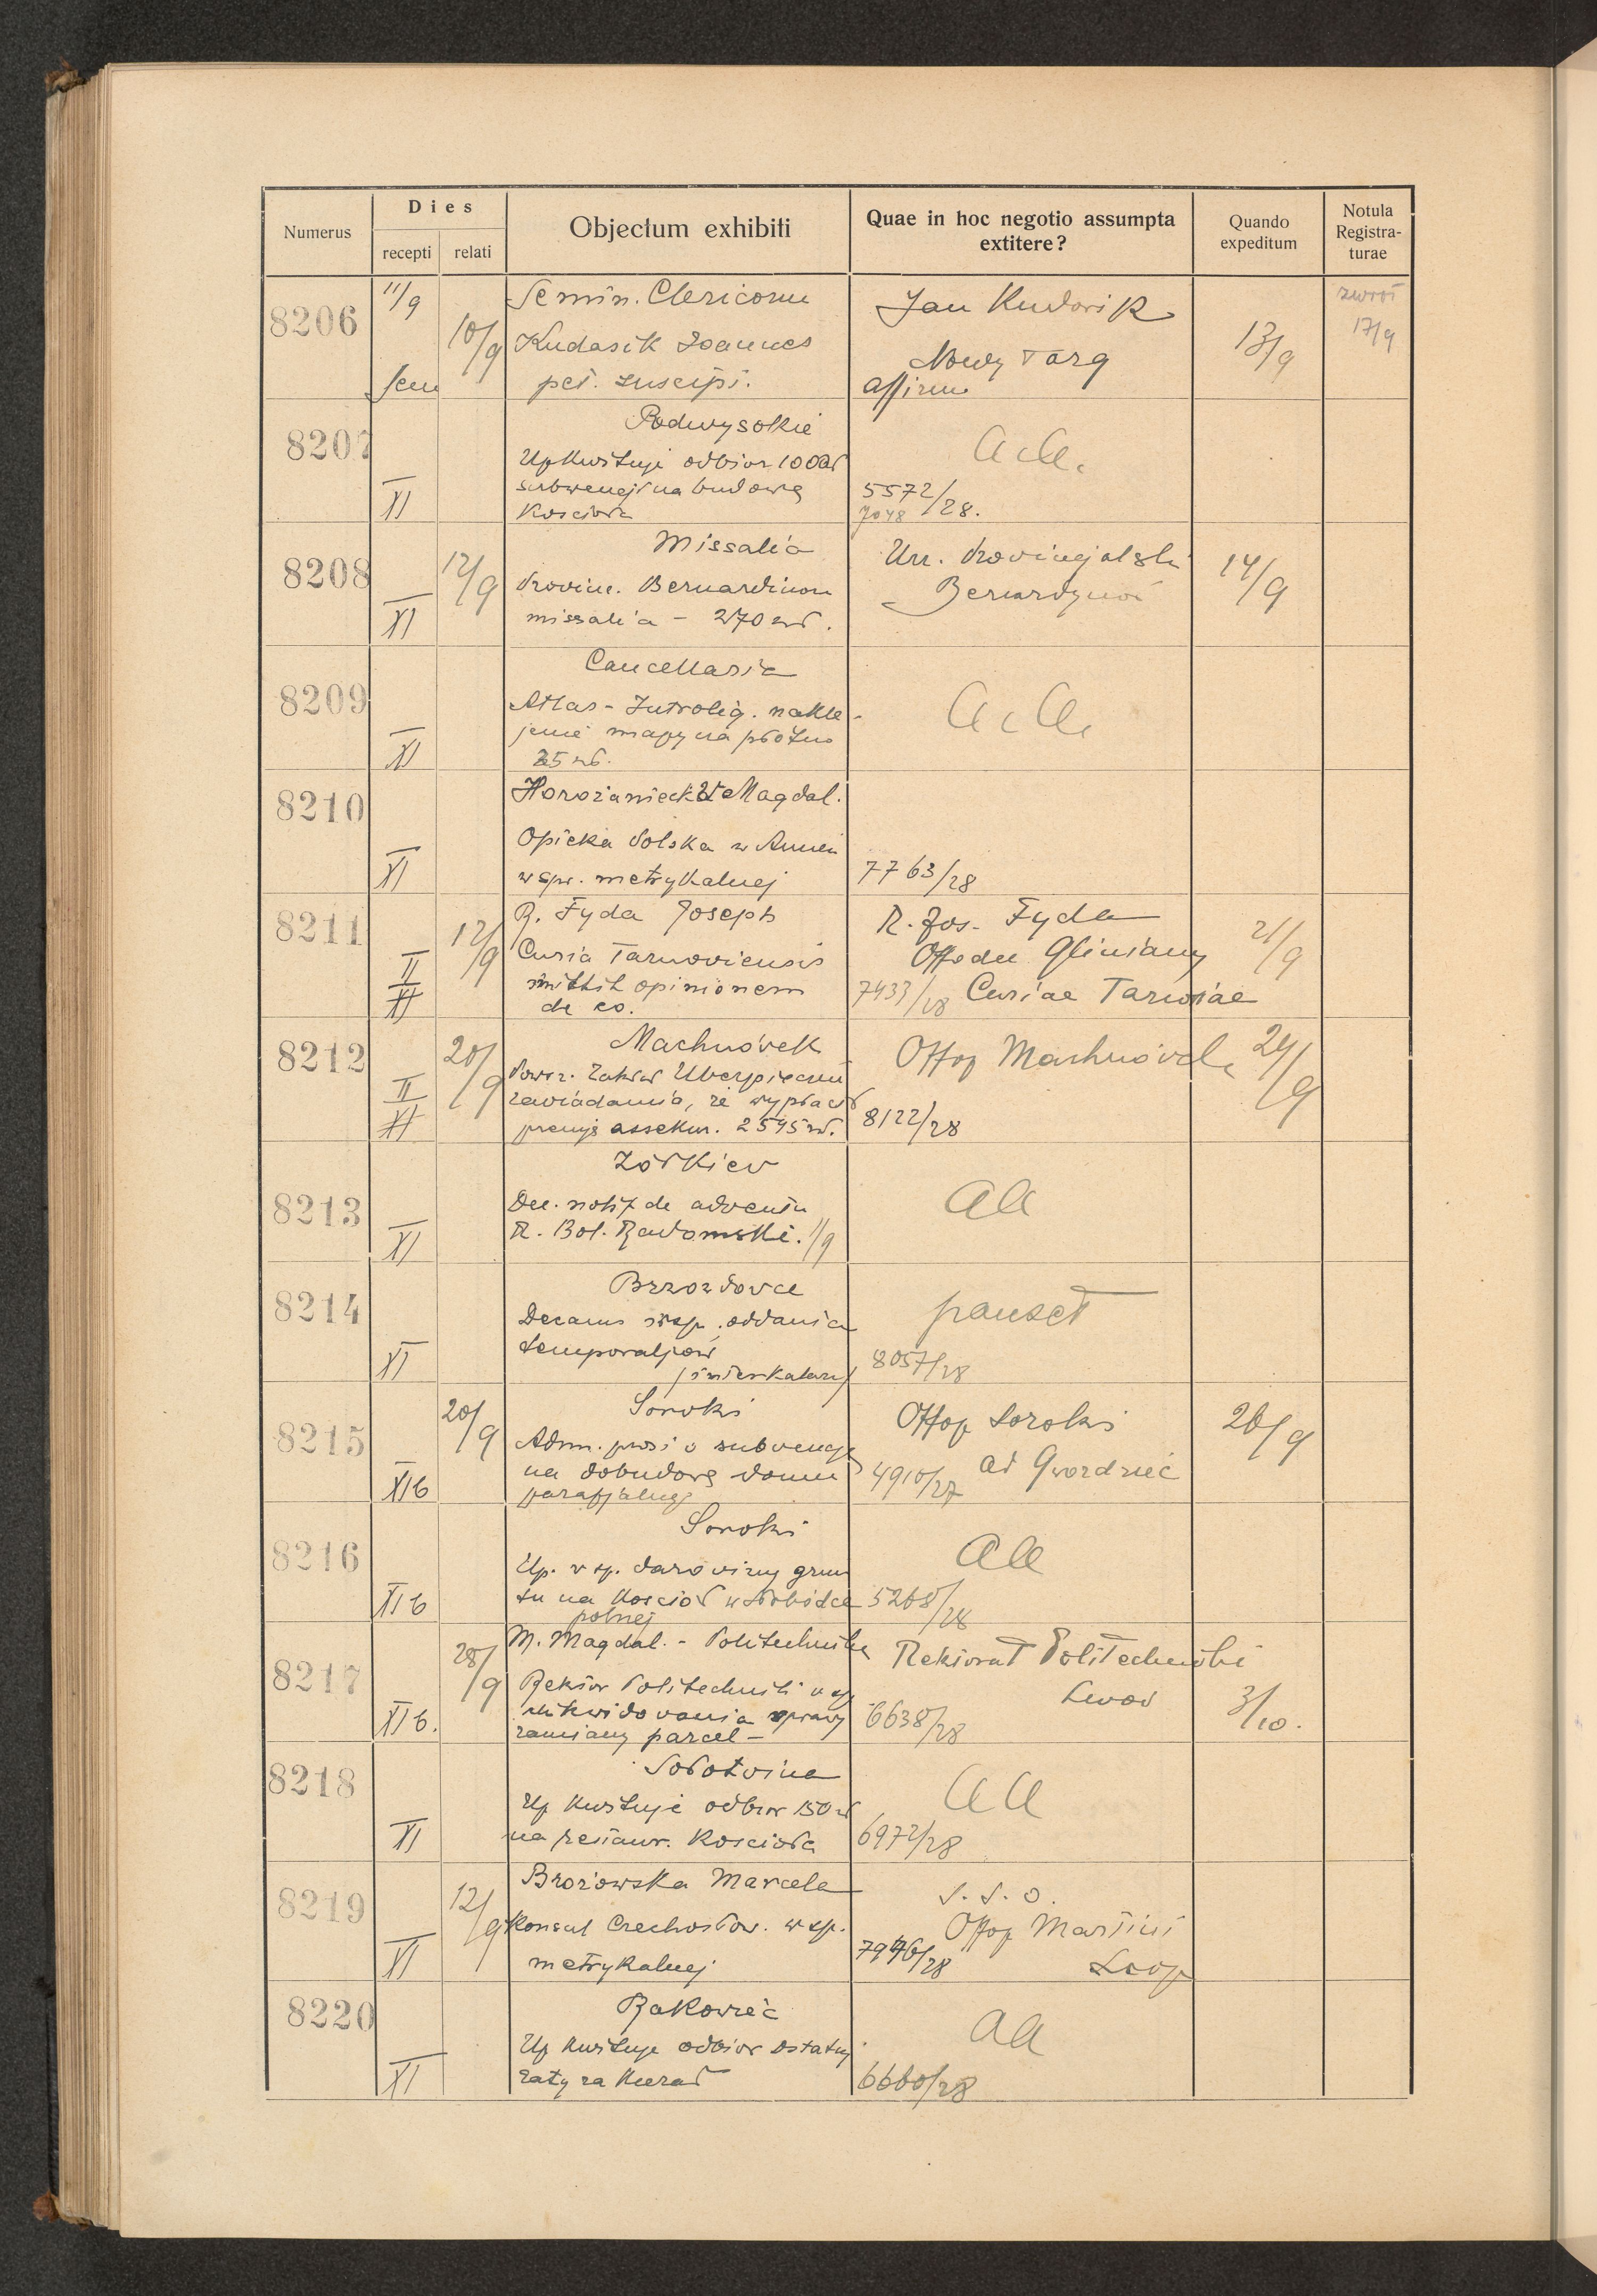 Numerus
Dies
recepti
relati
Objectum exhibiti
Quae in hoc negotio assumpta
extitere?
Quando
expeditum
Notula
Registra-
turae
8206
11/9
10/9
Semin. Clericorum
Kudasik Joannes
pet. suscipi.
Jan Kudasik
Nowy Targ
affirm
13/9
zwrot
17/9
8207
XI
Podwysokie
Up kwituje odbiór 100 zł
subwencji na budowę
Kościoła
a a.
5572/28.
7048
8208
12/9
XI
Missalia
Provinc. Bernardinorum
missalia - 270 zł.
Urz. Prowincjalski
Bernardynów
14/9
8209
XI
Cancellaria
Atlas - Introlig. nakle-
jenie mapy na płótno
25 zł.
a a
8210
XI
Horożaniecka Magdal.
Opieka Polska w Amer.
w spr. metrykalnej
7763/28
8211
12/9
II
XI
R. Fyda Joseph
Curia Tarnoviensis
mittit opinionem
de eo.
R. Jos. Fyda
Gliniany
7433/28 Curiae Tarnoviae
21/9
8212
20/9
II
XI
Machnówek
Powsz. Zakład Ubezpieczeń
zawiadamia, że wypłacił
premję assekur. 2595 zł.
Offop Machnówek
8122/28
24/9
8213
XI
Żółkiew
Dec. notif de adventu
R. Bol. Radomski. 1/9
aa
8214
XI
Brzozdowce
Decanus w sp. oddania
temporaljów
/interkalary/
pauset
8057/28
8215
20/9
XIb
Soroki
Adm. prosi o subwencję
na dobudowę domu
parafjalnego
Offop Soroki
4910/27 ad Gwoździec
26/9
8216
XIb
Soroki
Up. w sp. darowizny grun
tu na Kościół w Słobódce
polnej
aa
5268/28
8217
28/9
XIb.
M. Magdal. - Politechnika
Rektor Politechniki w sp.
zlikwidowania sprawy
zamiany parcel -
Rektorat Politechniki
Lwów
6638/28
3/10.
8218
XI
Sołotwina
Up kwituje odbiór 150 zł
na restaur. Kościoła
aa
6972/28
8219
12/9
XI
Brożowska Marcela
Konsul Czechosłow. w sp.
metrykalnej
S. S. O.
Offop Martini
7946/28
Leop
8220
XI
Rakowiec
Up kwituje odbiór ostatniej
raty za
aa
6660/28